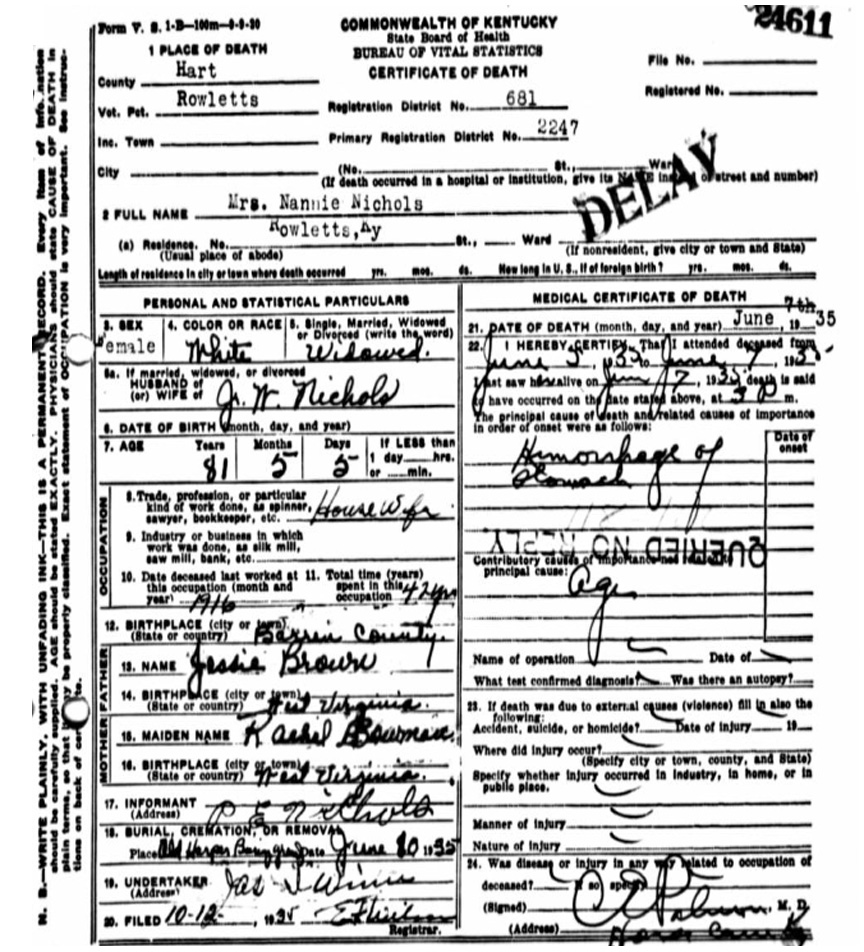 24611
Form V. S. 1-B—100m—9-9-30
COMMONWEALTH OF KENTUCKY
State Board of Health
BUREAU OF VITAL STATISTICS
CERTIFICATE OF DEATH
1 PLACE OF DEATH
County Hart
Vot. Pct. Rowletts
Inc. Town
City
File No.
Registered No.
Registration District No. 681
Primary Registration District No. 2247
(No. St., Ward
(If death occurred in a hospital or institution, give its NAME instead of street and number)
DELAY
2 FULL NAME Mrs. Nannie Nichols
(a) Residence. No. Rowletts, Ky St., Ward
(Usual place of abode) (If nonresident, give city or town and State)
Length of residence in city or town where death occurred yrs. mos. ds. How long in U. S., if of foreign birth? yrs. mos. ds.
PERSONAL AND STATISTICAL PARTICULARS
3. SEX Female
4. COLOR OR RACE White
5. Single, Married, Widowed or Divorced (write the word) Widowed.
5a. If married, widowed, or divorced
HUSBAND of
(or) WIFE of J. W. Nichols
6. DATE OF BIRTH (month, day, and year)
7. AGE Years 81 Months 5 Days 5 If LESS than
1 day hrs.
or min.
OCCUPATION
8. Trade, profession, or particular
kind of work done, as spinner,
sawyer, bookkeeper, etc. House Wife
9. Industry or business in which
work was done, as silk mill,
saw mill, bank, etc.
10. Date deceased last worked at
this occupation (month and
year) 1916
11. Total time (years)
spent in this
occupation 42 yrs
12. BIRTHPLACE (city or town)
(State or country) Barren County.
FATHER
13. NAME Jessie Brown
14. BIRTHPLACE (city or town)
(State or country) West Virginia.
MOTHER
15. MAIDEN NAME Rachel Bowman
16. BIRTHPLACE (city or town)
(State or country) West Virginia.
17. INFORMANT P E Nichols
(Address)
18. BURIAL, CREMATION, OR REMOVAL
Place Old Date June 1935
19. UNDERTAKER Jas
(Address)
20. FILED 10-12-, 1935
Registrar.
MEDICAL CERTIFICATE OF DEATH
21. DATE OF DEATH (month, day, and year) June 7th, 1935
22. I HEREBY CERTIFY, That I attended deceased from
June 5 1935 to June 7, 1935
I last saw her alive on June 7, 1935 death is said
to have occurred on the date stated above, at 3 P m.
The principal cause of death and related causes of importance
in order of onset were as follows:
Date of
onset
Himorrhage of
Stomach
QUERIED NO REPLY
Contributory causes of importance not related to
principal cause:
Age
Name of operation Date of
What test confirmed diagnosis? Was there an autopsy?
23. If death was due to external causes (violence) fill in also the
following:
Accident, suicide, or homicide? Date of injury 19
Where did injury occur?
(Specify city or town, county, and State)
Specify whether injury occurred in industry, in home, or in
public place.
Manner of injury
Nature of injury
24. Was disease or injury in any way related to occupation of
deceased? If so specify
(Signed) M. D.
(Address)
N. B.—WRITE PLAINLY, WITH UNFADING INK—THIS IS A PERMANENT RECORD. Every item of information
should be carefully supplied. AGE should be stated EXACTLY. PHYSICIANS should state CAUSE OF DEATH in
plain terms, so that it may be properly classified. Exact statement of OCCUPATION is very important. See instruc-
tions on back of certificate.